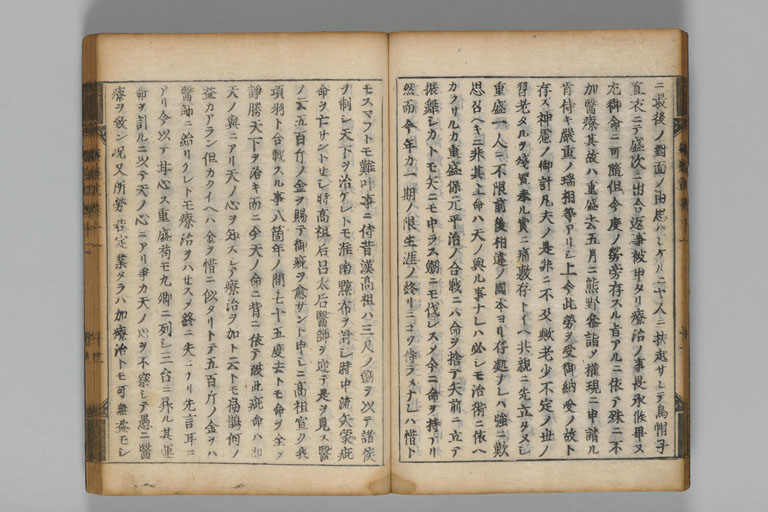 ニ最後ノ對面ノ由思ハレケルニヤ人ニ扶起サレテ烏帽子
直衣ニテ盛次ニ出合返事被申タリ療治ノ事畏承候畢又
尤御命ニ可隨但今度ノ勞旁存スル旨アルニ依テ殊ニ不
加醫療其故ハ重盛去五月ニ熊野參詣ノ權現ニ申請ル
肯侍キ嚴重ノ瑞相等アリシ上今此勞ヲ受御納受ノ故ト
存ス神慮ノ御計凡夫ノ是非ニ不及歟老少不定ノ世ノ
習老タルヲ殘置奉ル實ニ痛敷存トイヘ共親ニ先立タメシ
重盛一人ニ不限前後相違ノ國本ヨリ存処ナレハ強ニ歎
思召ヘキニ非其上命ハ天ノ與ル事ナレハ必シモ治術ニ依ヘ
カラサルカ重盛保元平治ノ合戰ニハ命ヲ捨テ矢前ニ立テ
振舞シカトモ矢ニモ中ラス劔ニモ伐レスノ今ニ命ヲ持アリ
然而今年カ一期ノ限生涯ノ終リニコヲ侍ラスナレハ惜ト
モスマフトモ難叶事ニ侍昔漢高祖ハ三尺ノ劔ヲ以テ諸侯
ヲ制シ天下ヲ治ケレトモ淮南黥布ヲ討シ時中流矢蒙疵
命ヲ亡サントセシ時高祖后呂太后醫師ヲ迎テ是ヲ見ス醫
ノ云五百斤ノ金ヲ賜テ御疵ヲ愈サント申シニ高祖宣ク我
項羽ト合戰スル事八箇年ノ間七十五度去トモ命ヲ全ク
諍勝天下ヲ治キ而ニ今天ノ命ニ背ニ依テ被此疵命ハ即
天ノ與ニアリ天ノ心ヲ知スシテ療治ヲ加ト云トモ扁鵲何ノ
益カアラン但カクイヘハ金ヲ惜ニ似タリトテ五百斤ノ金ヲハ
醫師ニ給リケレトモ療治ヲハセスノ終ニ失ニケリ先言耳ニ
アリ今以テ甘心ス重盛苟モ九卿ニ列シ三台ニ昇ル其運
命ヲ計ルニ以テ天ノ心ニアリ爭カ天ノ心ヲ不察シテ愚ニ醫
療ヲ致ン况又所勞若定業タラハ加療治トモ可無益モシ